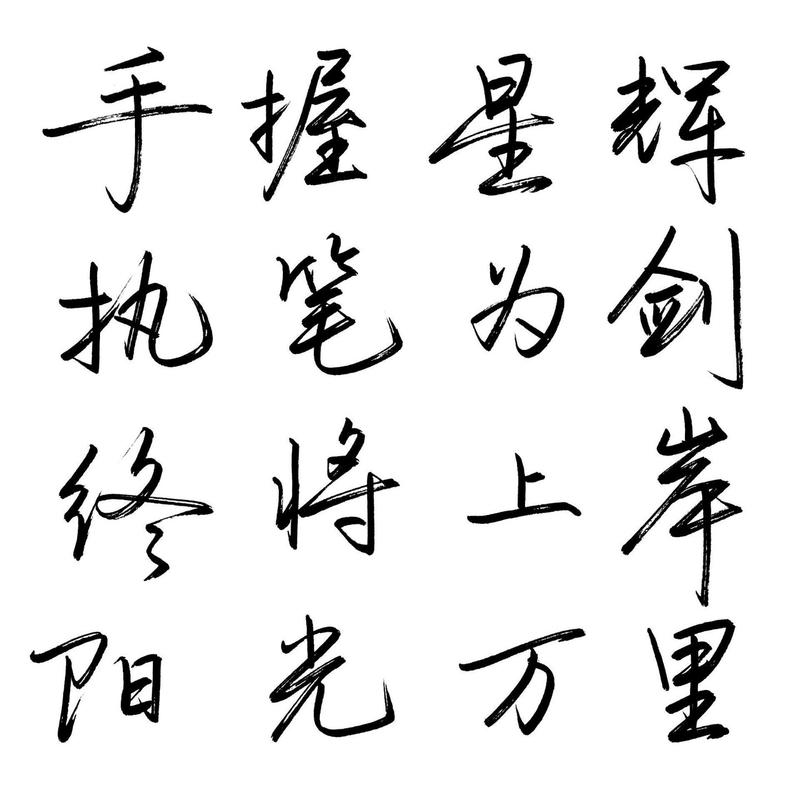 手握星辉
执笔为剑
终将上岸
阳光万里